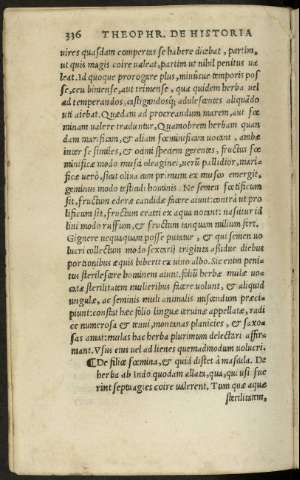 336 THEOPHR. DE HISTORIA
uires quasdam compertas se habere dicebat, partim,
ut quis magis coire ualeat, partim ut nihil penitus ua
leat. Id quoque prorogare plus, minusue temporis pos
se, ceu bimense, aut trimense, qua quidem herba uel
ad temperandos, castigandosq; adulescentes aliquādo
uti aiebat. Quædam ad procreandum marem, aut fœ
minam ualere traduntur, Quamobrem herbam quan
dam marificam, & aliam fœminificam uocant, ambæ
inter se similes, & ocimi speciem gerentes, fructus fœ
minificæ modo musci oleaginei, uerū pallidior, mari
ficæ uerò, sicut oliua cum primum ex musco emergit,
geminus modo testiculi hominis. Ne semen fœtificum
sit, fructum ederæ candidæ facere aiunt: contrà ut pro
lificum sit, fructum cratæi ex aqua potant: nascitur id
lini modo russum, & fructum tanquam milium fert.
Gignere nequaquam posse putatur, & qui semen uo
lucri collectum modo sextarij triginta assiduè diebus
portionibus æquis biberet ex uino albo. Siccent enim peni
tus sterilesq́ue hominem aiunt. filicū herbæ mulæ uoc
atæ sterilitatem mulieribus facere uolunt, & aliquid
ungulæ, ac seminis muli animalis miscendum præci
piunt: constat hæc filio linguæ ceruinæ appellatæ, radi
ce numerosa & tenui, montanas planicies, & saxo-
sas amat: mulas hac herba plurimum delectari affir
mant. Vsus eius uel ad lienes quemadmodum uolucri.
¶ De filice fœmina, & quid distet à mascula. De
herba ab Indo quodam allata, qua, qui usi fue
rint septuagies coire ualerent. Tum quæ aquæ
sterilitatem,